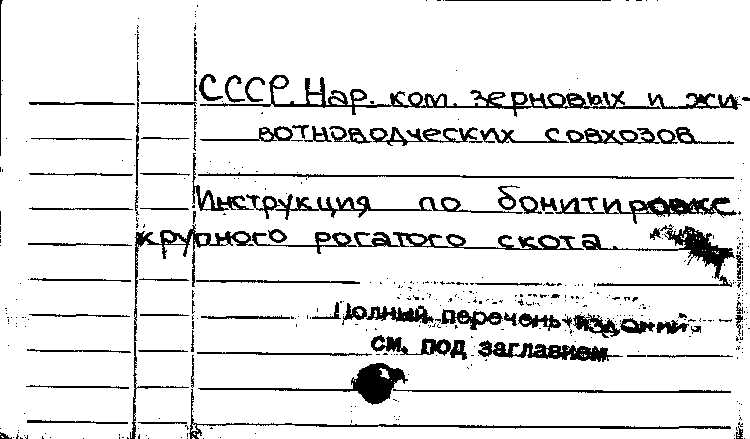 СССР. Нар. ком. зерновых и жи-
вотноводческих совхозов
Инструкция по бонитировке
крупного рогатого скота.
Полный перечень изданий
см. под заглавием